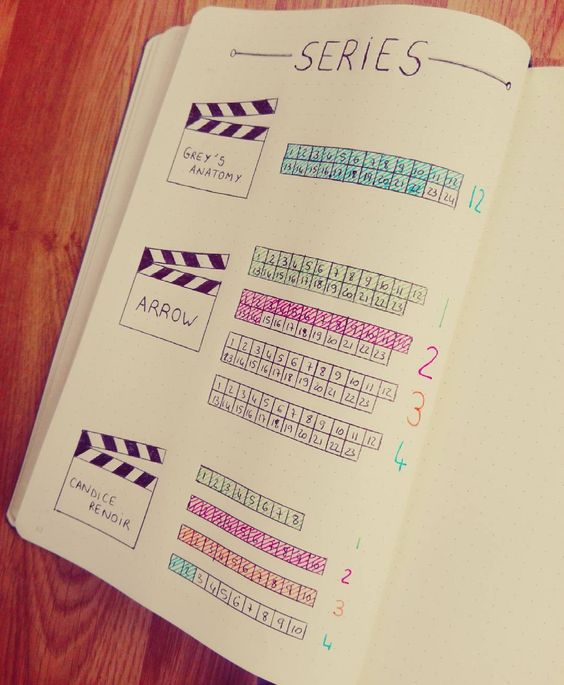 SERIES
GREY'S
ANATOMY
1 2 3 4 5 6 7 8 9 10 11 12
13 14 15 16 17 18 19 20 21 22 23 24
12
ARROW
1 2 3 4 5 6 7 8 9 10 11 12
13 14 15 16 17 18 19 20 21 22 23
1
1 2 3 4 5 6 7 8 9 10 11 12
13 14 15 16 17 18 19 20 21 22 23
2
1 2 3 4 5 6 7 8 9 10 11 12
13 14 15 16 17 18 19 20 21 22 23
3
1 2 3 4 5 6 7 8 9 10 11 12
13 14 15 16 17 18 19 20 21 22 23
4
CANDICE
RENOIR
1 2 3 4 5 6 7 8
1
1 2 3 4 5 6 7 8 9 10
2
1 2 3 4 5 6 7 8 9 10
3
1 2 3 4 5 6 7 8 9 10
4